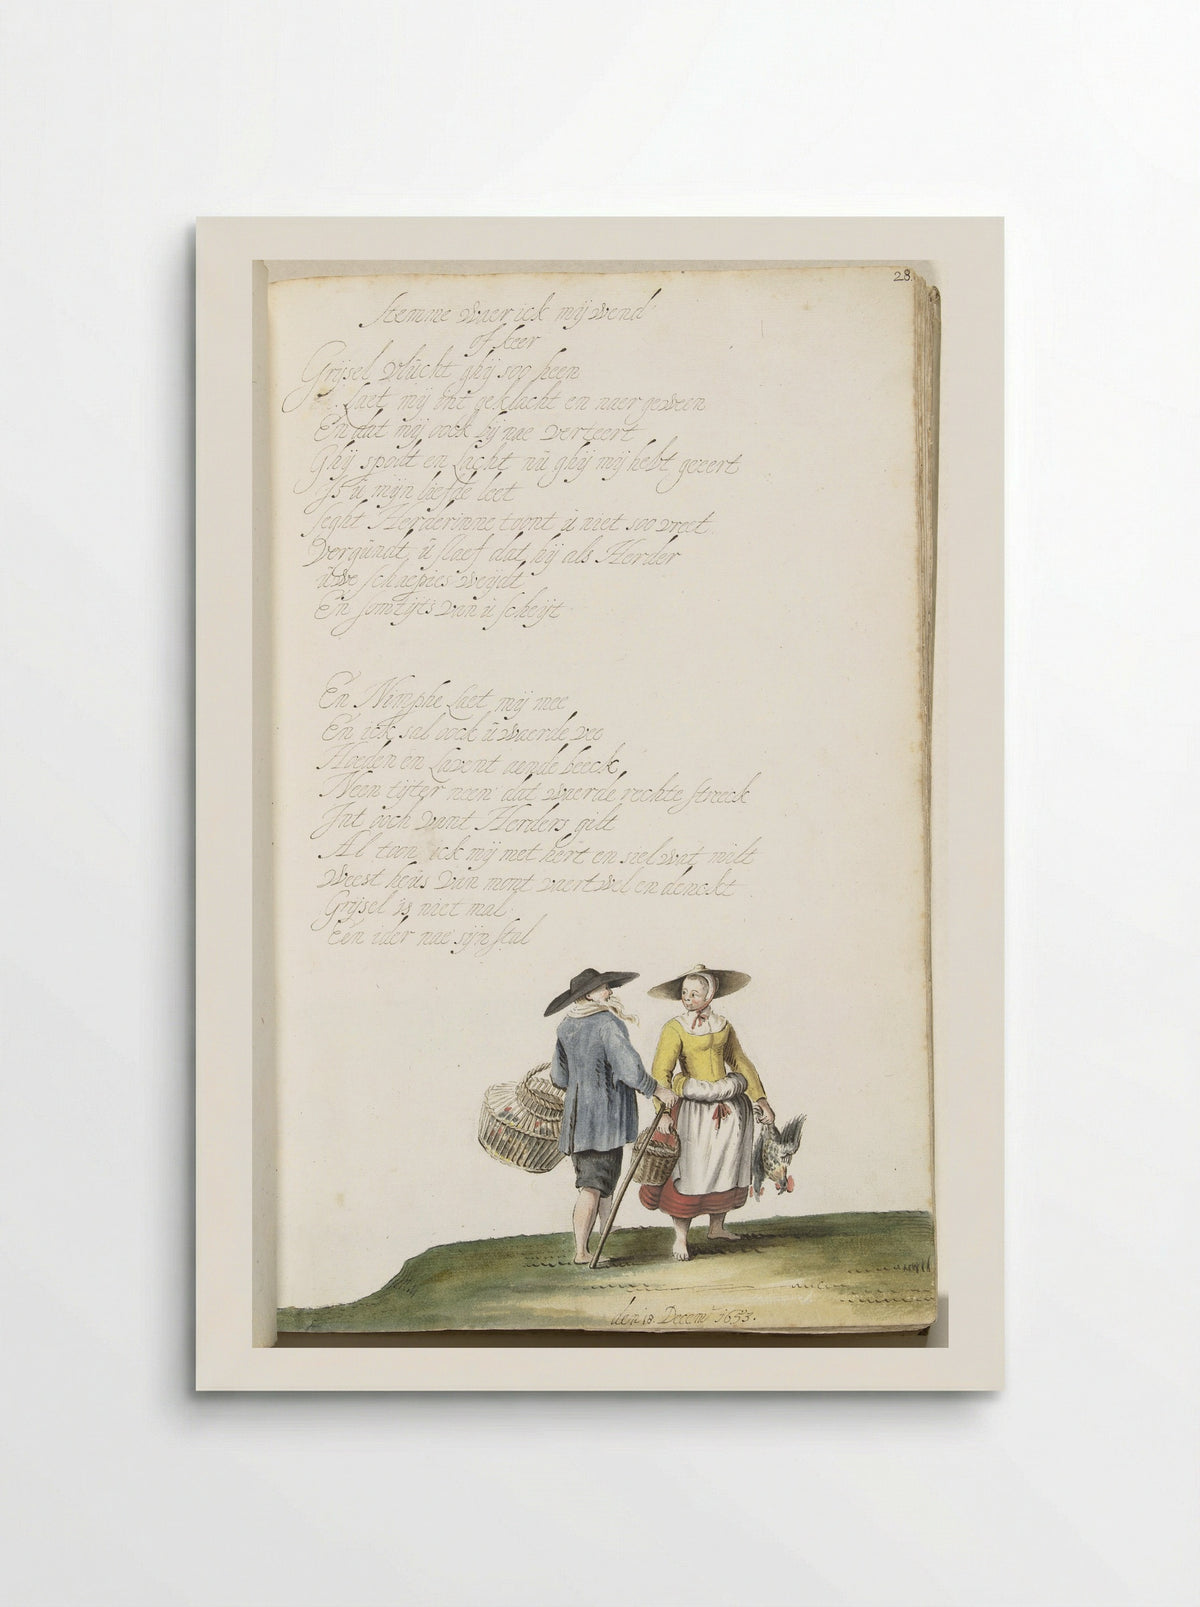 28.
Stemme waer ick mij wend
of keer
Grijsel vlücht ghij soo heen
Laet mij int geklacht en naer geween
En dat mij oock bij nae verteert
Ghij spodt en Lacht nü ghij mij hebt geeert
Is ü mijn liefde leet
seght Herderinne toont ü niet soo vreet
Vergündt ü slaef dat hij als Herder
üwe schaepies weijdt
En somtijts van ü scheijt
En Nimphe Laet mij mee
En ick sal oock ü waerde vee
Hoeden en Lavent aende beeck
Neen tijter neen dat waerde rechte streeck
Int ooch vant Herders gilt
Al toon ick mij met hert en siel wat milt
Weest heüs van mont vaert wel en denckt
Grijsel is niet mal
Een ider nae sijn stal
den 18. Decem 1653.